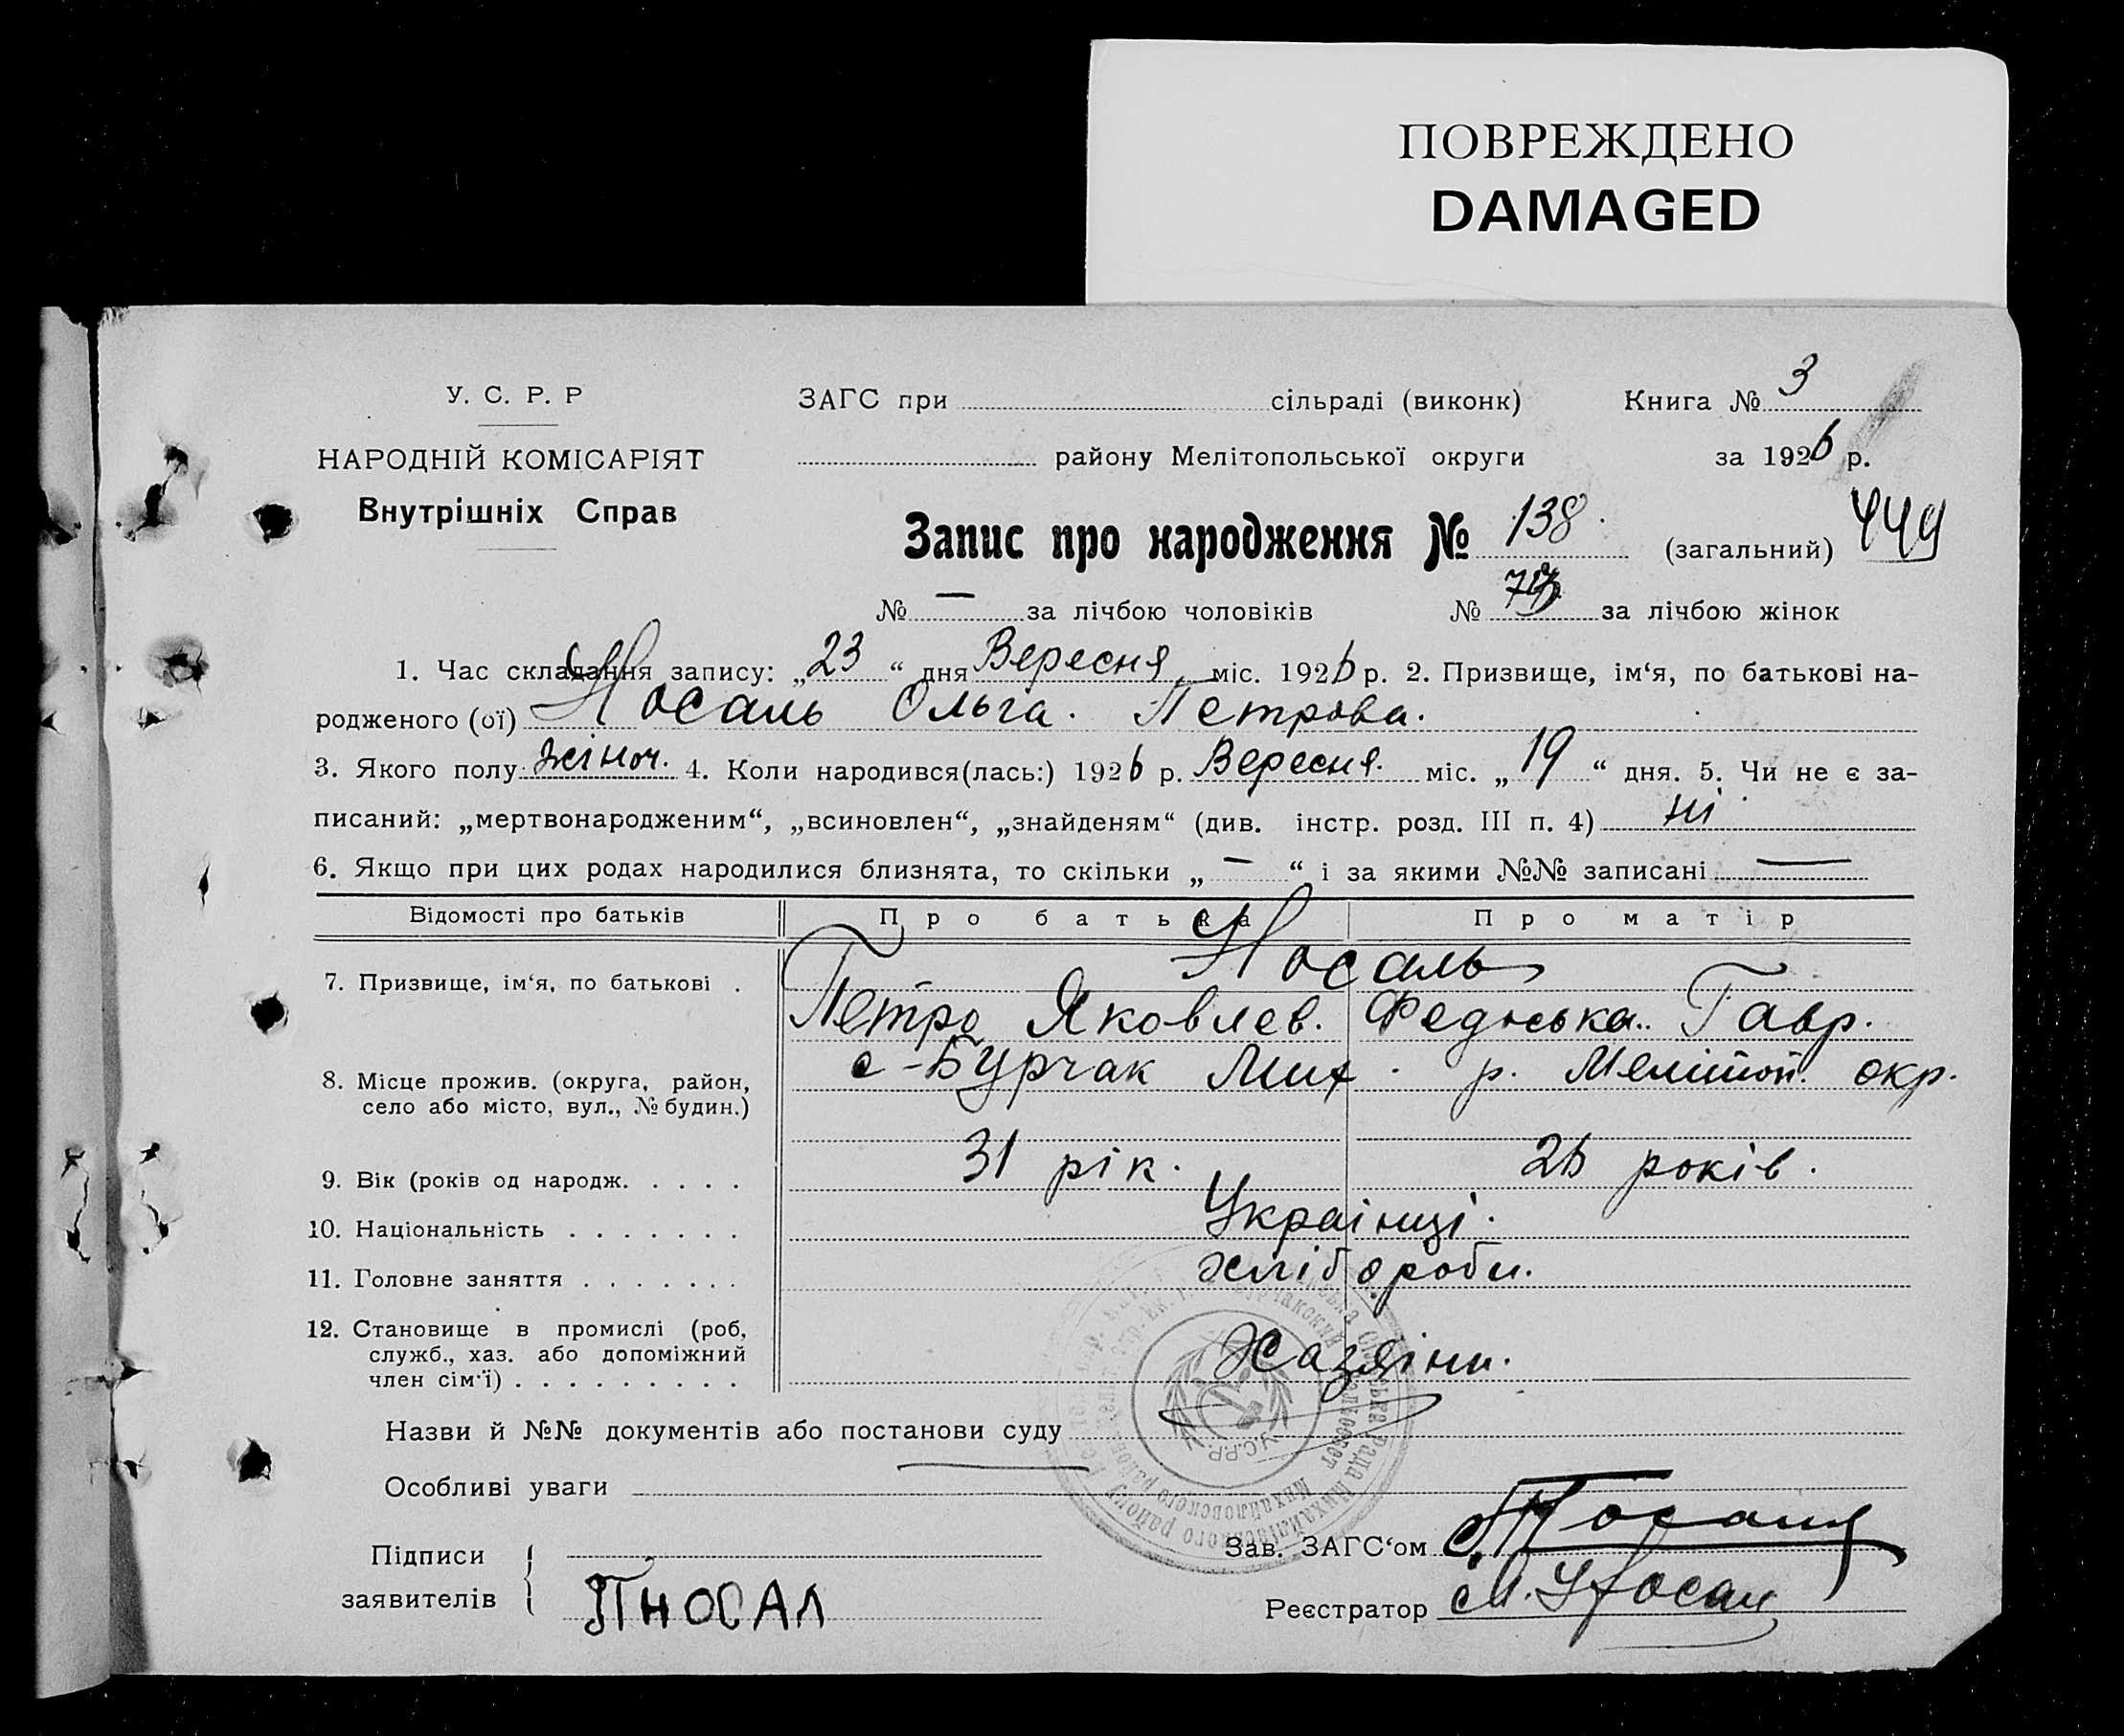 ПОВРЕЖДЕНО
DAMAGED
У. С. Р. Р
НАРОДНІЙ КОМІСАРІЯТ
Внутрішніх Справ
ЗАГС при сільраді (виконк)
Книга № 3
району Мелітопольської округи
за 1926 р.
Запис про народження № 138. (загальний) 449
№ — за лічбою чоловіків № за лічбою жінок
1. Час складання запису: „23“ дня Вересня міс. 1926 р. 2. Призвище, ім‘я, по батькові на-
родженого (ої) Носаль Ольга. Петрова.
3. Якого полу: жіноч. 4. Коли народився(лась:) 1926 р. Вересня. міс. „19“ дня. 5. Чи не є за-
писаний: „мертвонародженим“, „всиновлен“, „знайденям“ (див. інстр. розд. III п. 4) ні
6. Якщо при цих родах народилися близнята, то скільки „—“ і за якими №№ записані —
Відомості про батьків Про батька Про матір
Носаль
7. Призвище, ім‘я, по батькові .
Петро Яковлев. Федоська. Гавр.
с-Бурчак Мих. р. Меліт̄оп̄. окр.
8. Місце прожив. (округа, район,
село або місто, вул., № будин.)
9. Вік (років од народж. . . . . 31 рік. 26 років.
10. Національність . . . . . . . Українці.
11. Головне заняття . . . . . . . хлібороби.
12. Становище в промислі (роб,
служб., хаз. або допоміжний
член сім‘ї) . . . . . . . . . Хазяіни.
Назви й №№ документів або постанови суду
У.С.Р.Р.
Особливі уваги
Підписи
заявителів
ПНОСАЛ
Зав. ЗАГС‘ом
Реєстратор М. Носал